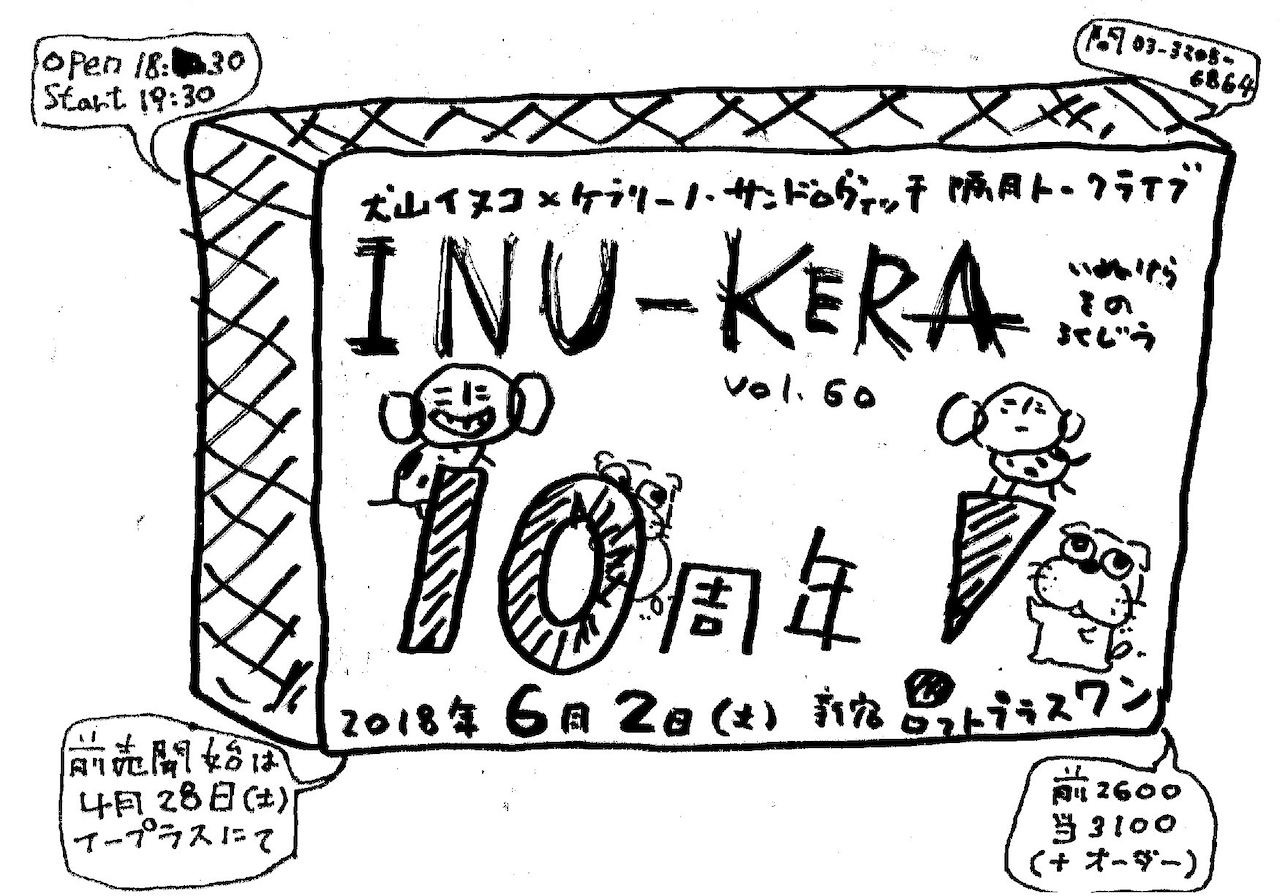 Open 18:30
Start 19:30
問 03-3205-
6864
犬山イヌコ×ケラリーノ・サンドロヴィッチ 隔月トークライブ
INU-KERA
いぬけら
その
ろくじう
vol. 60
10周年!
2018年 6月 2日(土) 新宿 ロフトプラスワン
前売開始は
4月28日(土)
イープラスにて
前2600
当3100
(+オーダー)